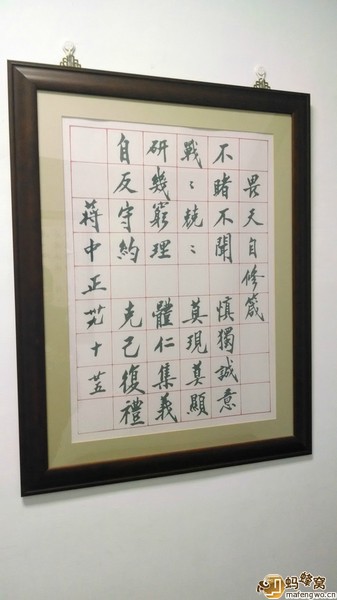 畏天自修箴
不睹不聞 慎獨誠意
戰〻兢〻 莫現莫顯
研幾窮理 體仁集義
自反守約 克己復禮
蔣中正 廿九 十 廿五
蚂蜂窝
mafengwo.cn